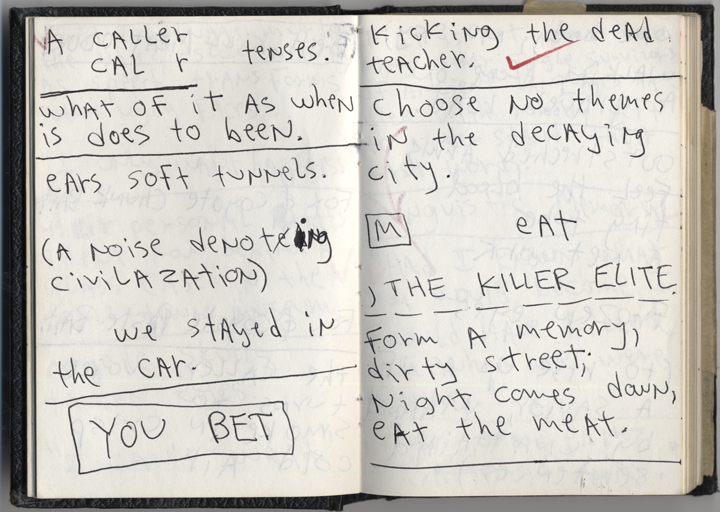 A CALLER
CAL r tenses.
what of it as when
is does to been.
ears soft tunnels.
(A noise denoteing
civilAzation)
we stayed in
the car.
YOU BET
Kicking the dead
teacher.
Choose no themes
in the decaying
city.
M eat
, THE KILLER ELITE.
Form a memory,
dirty street;
Night comes down,
eat the meat.